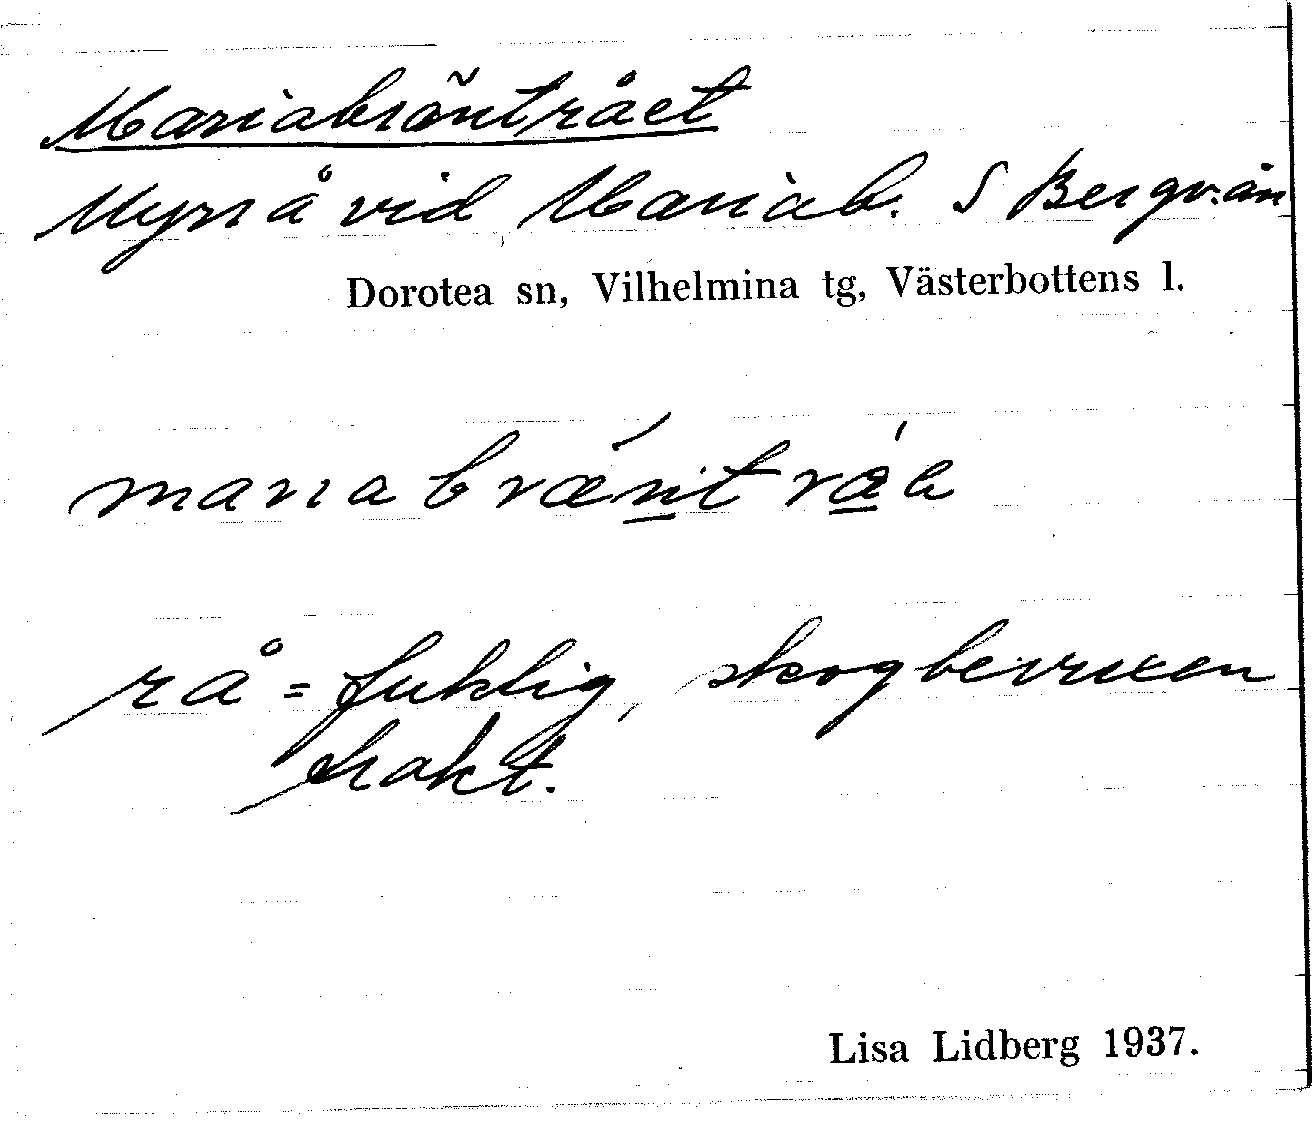 Mariabräntrået
Myrrå vid Mariab. S Bergv.ån
Dorotea sn, Vilhelmina tg, Västerbottens l.
mariabræ´ntrá̱a
rå = fuktig, skogbevuxen
trakt.
Lisa Lidberg 1937.